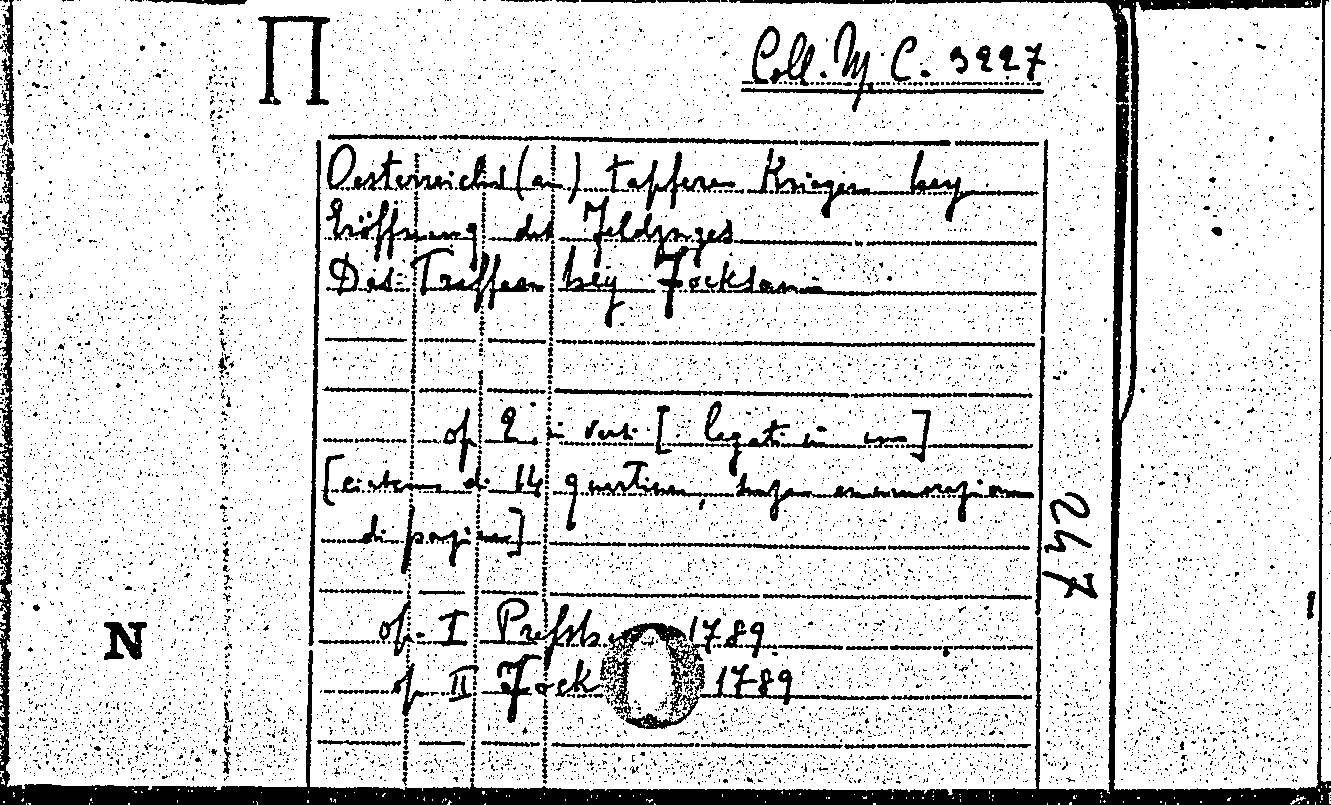 Π
Coll. M. C. 3227
Oesterreichs (an) tapferen Krieger bey
Eröffnung des Feldzuges
Das Treffen bey Focksan
op. 2. in versi [legati in uno]
[ciascuno di 14 senza enumerazione
di pagine]
247
op. I 1789.
N
op. II Fock 1789